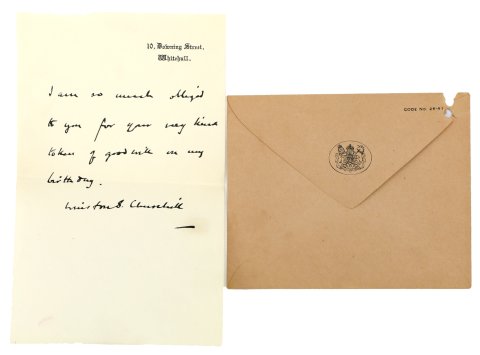 10, Downing Street,
Whitehall.
I am so much obliged
to you for your very kind
token of goodwill on my
birthday.
Winston S. Churchill
CODE No. 24-41